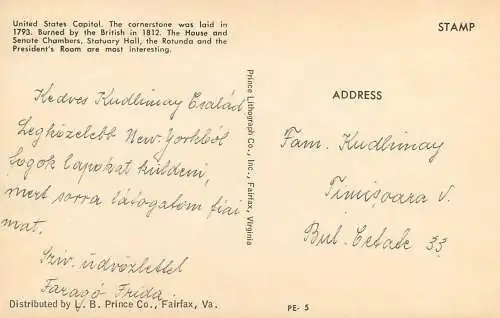 United States Capitol. The cornerstone was laid in
1793. Burned by the British in 1812. The House and
Senate Chambers, Statuary Hall, the Rotunda and the
President's Room are most interesting.
STAMP
ADDRESS
Kedves Kudlimay Család
Legközelebb New-Yorkból
fogok lapokat küldeni,
mert sorra látogatom fiai
mat.
Sziv. üdvözlettel
Faragó Frida.
Prince Lithograph Co., Inc., Fairfax, Virginia
Fam. Kudlimay
Timişoara V.
Bul. Cetate 33
Distributed by L. B. Prince Co., Fairfax, Va.
PE- 5